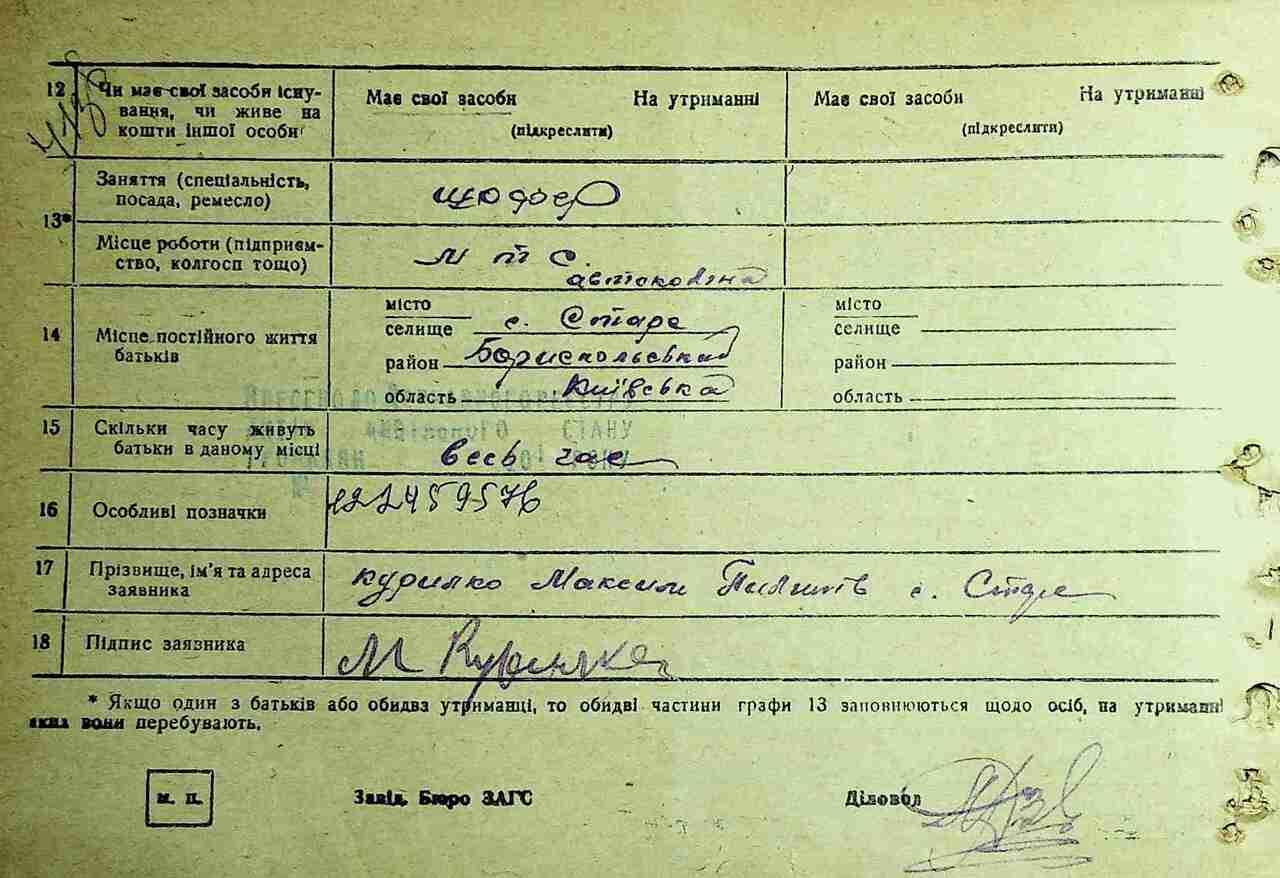 12 Чи має свої засоби існу-
вання, чи живе на
кошти іншої особи
Має свої засоби На утриманні
(підкреслити)
Має свої засоби На утриманні
(підкреслити)
13*
Заняття (спеціальність,
посада, ремесло)
шофер
Місце роботи (підприєм-
ство, колгосп тощо)
М Т С.
автоколона
14 Місце постійного життя
батьків
місто
селище с. Старе
район Бориспольський
область Київська
місто
селище
район
область
15 Скільки часу живуть
батьки в даному місці
весь час
СТАНУ
16 Особливі позначки
17 Прізвище, ім’я та адреса
заявника
Курилко Максим с. Старе
18 Підпис заявника
М Курилко
* Якщо один з батьків або обидва утриманці, то обидві частини графи 13 заповнюються щодо осіб, на утриманні
яких вони перебувають.
м. п.
Завід. Бюро ЗАГС
Діловод